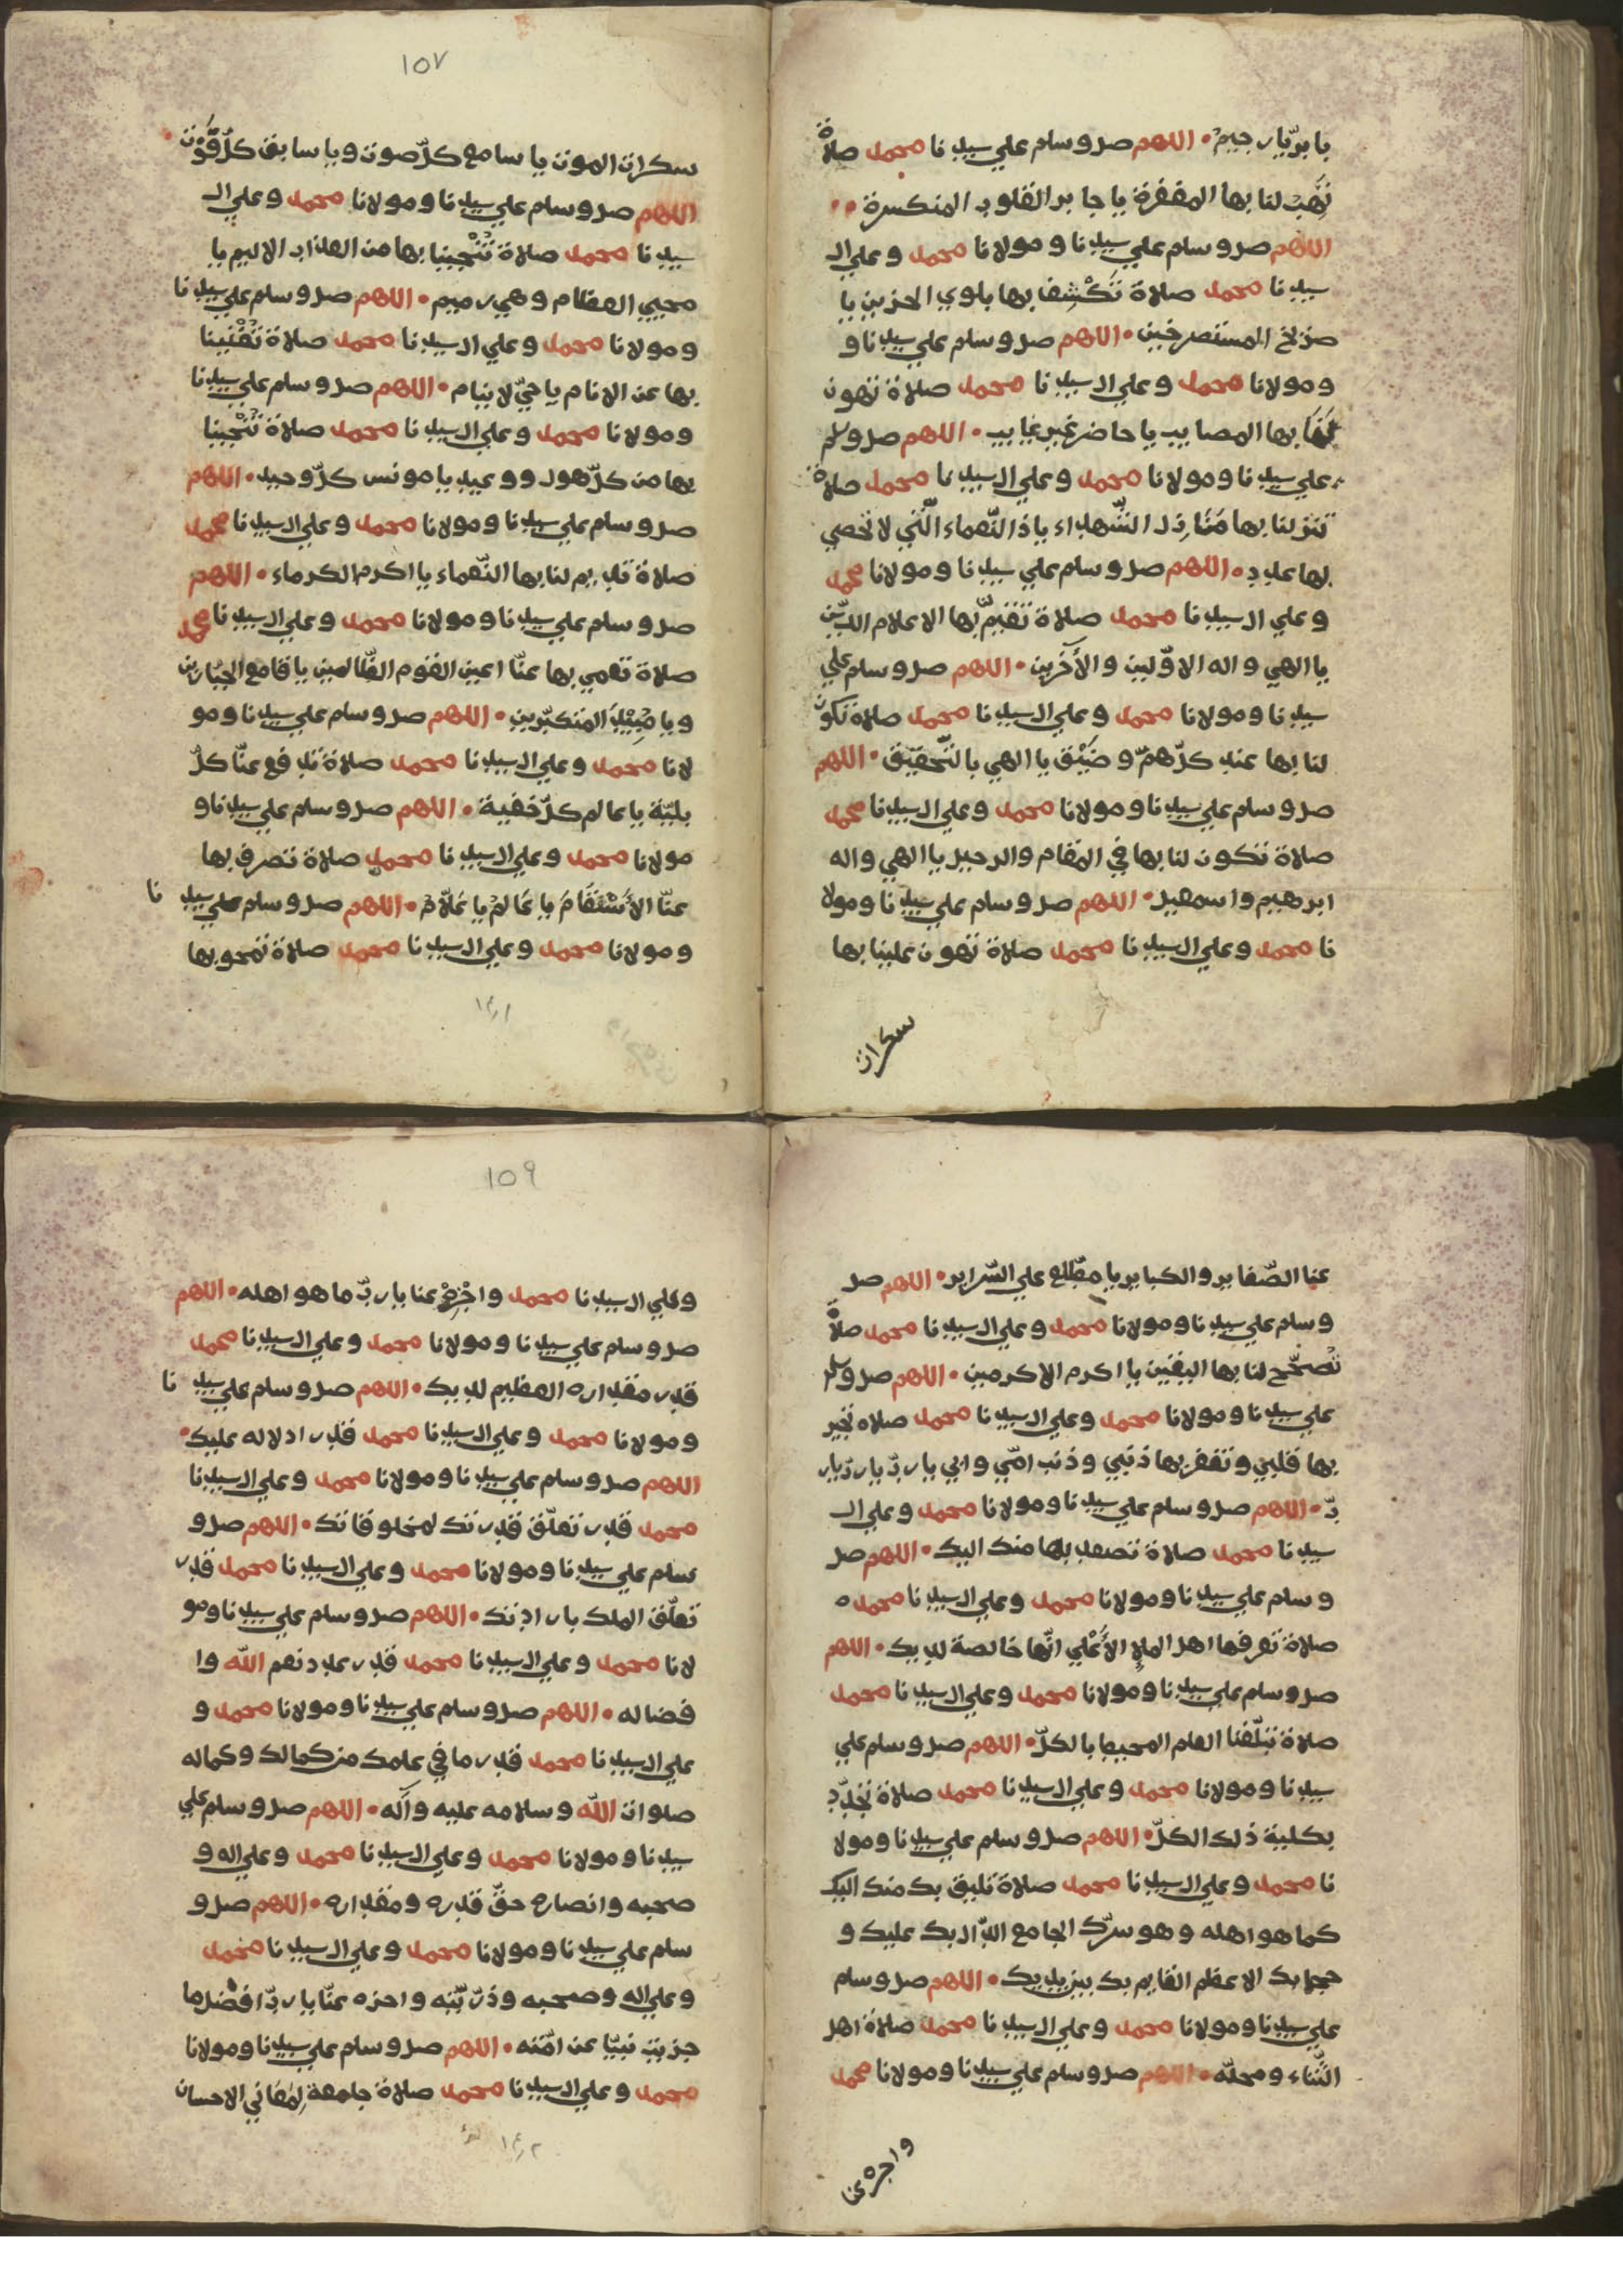 يا برّ يا رحيم • اللهم صل وسلم علي سيدنا محمد صلاة
تَهَبُ لنا بها المغفرة يا جابر القلوب المنكسرة
اللهم صل وسلم علي سيدنا ومولانا محمد وعلي ال
سيدنا محمد صلاة تَكْشِف بها بلوي الحزين يا
صريخ المستصرخين • اللهم صل وسلم علي سيدنا و
ومولانا محمد وعلي ال سيدنا محمد صلاة تهون
بها المصايب يا حاضر غير غايب • اللهم صل وسلم
علي سيدنا ومولانا محمد وعلي ال سيدنا محمد صلاة
تنزلنا بها مَنَازِل الشّهداء يا ذا النّعماء الّتي لا تحصي
لها عدد • اللهم صل وسلم علي سيدنا ومولانا محمد
وعلي ال سيدنا محمد صلاة تقيم بها الاعلام الدّين
يا الهي واله الاوّلين والأخرين • اللهم صل وسلم علي
سيدنا ومولانا محمد وعلي ال سيدنا محمد صلاة تكون
لنا بها عند كلّ همّ وضَيْق يا الهي بالتّحقيق • اللهم
صل وسلم علي سيدنا ومولانا محمد وعلي ال سيدنا محمد
صلاة تكون لنا بها في المقام والرحيل يا الهي واله
ابرهيم واسمعيل • اللهم صل وسلم علي سيدنا ومولا
نا محمد وعلي ال سيدنا محمد صلاة تهون علينا بها
سكرات
١٥٧
سكرات الموت يا سامع كلّ صوت ويا سابق كلّ فَوْت •
اللهم صل وسلم علي سيدنا ومولانا محمد وعلي ال
سيدنا محمد صلاة تُنْجينا بها من العذاب الاليم يا
محيي العظام وهي رميم • اللهم صل وسلم علي سيدنا
ومولانا محمد وعلي ال سيدنا محمد صلاة تُغْنينا
بها عن الانام يا حيّ لا ينام • اللهم صل وسلم علي سيدنا
ومولانا محمد وعلي ال سيدنا محمد صلاة تُنْجينا
بها من كلّ هول ووعيد يا مونس كلّ وحيد • اللهم
صل وسلم علي سيدنا ومولانا محمد وعلي ال سيدنا محمد
صلاة تديم لنا بها النّعماء يا اكرم الكرماء • اللهم
صل وسلم علي سيدنا ومولانا محمد وعلي ال سيدنا محمد
صلاة تعمي بها عنّا اعين القوم الظّالمين يا قامع الجبّارين
ويا مُبِيْدَ المتكبّرين • اللهم صل وسلم علي سيدنا ومو
لانا محمد وعلي ال سيدنا محمد صلاة تدفع عنّا كلّ
بليّة يا عالم كلّ خفية • اللهم صل وسلم علي سيدنا و
مولانا محمد وعلي ال سيدنا محمد صلاة تصرف بها
عنّا الأَسْقَامَ يا عَالمُ يا عَلّامُ • اللهم صل وسلم علي سيدنا
ومولانا محمد وعلي ال سيدنا محمد صلاة تمحو بها
عنا الصّغاير والكباير يا مطّلع علي السّراير • اللهم صل
وسلم علي سيدنا ومولانا محمد وعلي ال سيدنا محمد صلاة
تُصحّح لنا بها اليقين يا اكرم الاكرمين • اللهم صل وسلم
علي سيدنا ومولانا محمد وعلي ال سيدنا محمد صلاه تنير
بها قلبي وتغفر بها ذنبي وذنب امّي وابي يا ربّ يا ربّ يا ر
بّ • اللهم صل وسلم علي سيدنا ومولانا محمد وعلي ال
سيدنا محمد صلاة تصعد بها منك اليك • اللهم صل
وسلم علي سيدنا ومولانا محمد وعلي ال سيدنا محمد ه
صلاة تعرفها اهل الملإ الأَعْلي انّها خالصة لديك • اللهم
صل وسلم علي سيدنا ومولانا محمد وعلي ال سيدنا محمد
صلاة تبلّغنا العلم المحيط بالكلّ • اللهم صل وسلم علي
سيدنا ومولانا محمد وعلي ال سيدنا محمد صلاة تجدّد
بكلية ذلك الكلّ • اللهم صل وسلم علي سيدنا ومولا
نا محمد وعلي ال سيدنا محمد صلاة تليق بك منك اليك
كما هو اهله وهو سرّك الجامع الدّال بك عليك و
حجابك الاعظم القايم بك بين يديك • اللهم صل وسلم
علي سيدنا ومولانا محمد وعلي ال سيدنا محمد صلاة اهل
الثّناء ومحلّه • اللهم صل وسلم علي سيدنا ومولانا محمد
واجزه عنا
١٥٩
وعلي ال سيدنا محمد واجْزِهْ عنا يا ربّ ما هو اهله • اللهم
صل وسلم علي سيدنا ومولانا محمد وعلي ال سيدنا محمد
قدر مقداره العظيم لديك • اللهم صل وسلم علي سيدنا
ومولانا محمد وعلي ال سيدنا محمد قدر ادلاله عليك •
اللهم صل وسلم علي سيدنا ومولانا محمد وعلي ال سيدنا
محمد قدر تعلّق قدرتك لمخلوقاتك • اللهم صل و
سلم علي سيدنا ومولانا محمد وعلي ال سيدنا محمد قدر
تعلّق الملك بارادتك • اللهم صل وسلم علي سيدنا ومو
لانا محمد وعلي ال سيدنا محمد قدر عدد نعم اللّه وا
فضاله • اللهم صل وسلم علي سيدنا ومولانا محمد و
علي ال سيدنا محمد قدر ما في علمك من كمالك وكماله
صلوات اللّه وسلامه عليه وآله • اللهم صل وسلم علي
سيدنا ومولانا محمد وعلي ال سيدنا محمد وعلي اله و
صحبه وانصاره حقّ قدره ومقداره • اللهم صل و
سلم علي سيدنا ومولانا محمد وعلي ال سيدنا محمد
وعلي اله وصحبه وذرّيّته واجزه عنّا يا ربّ افضل ما
جزيت نبيّا عن امّته • اللهم صل وسلم علي سيدنا ومولانا
محمد وعلي ال سيدنا محمد صلاة جامعة لِمَعَاني الاحسان